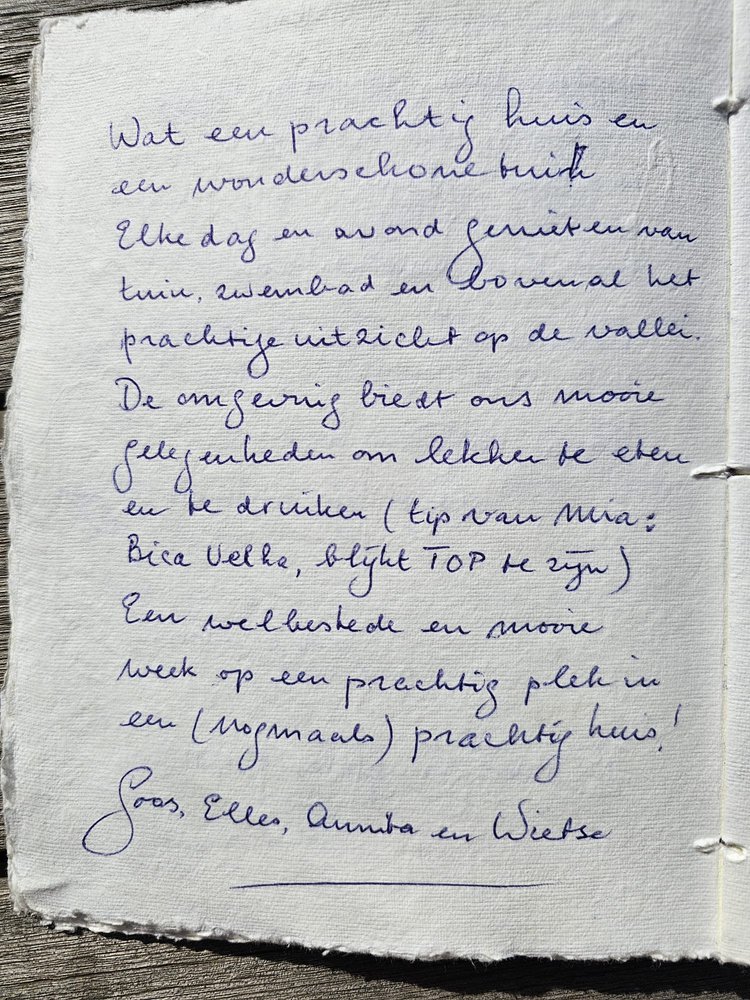 Wat een prachtig huis en
een wonderschone tuin
Elke dag en avond genieten van
tuin, zwembad en bovenal het
prachtige uitzicht op de vallei.
De omgeving biedt ons mooie
gelegenheden om lekker te eten
en te drinken (tip van Mia:
Bica Velha, blijkt TOP te zijn)
Een welbestede en mooie
week op een prachtig plek in
een (nogmaals) prachtig huis!
Goos, Elles, Annita en Wietse